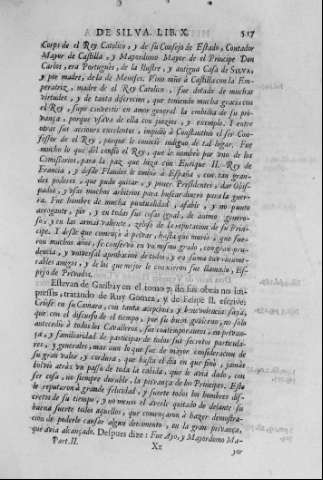 DE SILVA. LIB. X. 517
Corps de el Rey Catolico, y de su Consejo de Estado, Contador
Mayor de Castilla, y Mayordomo Mayor de el Principe Don
Carlos, era Portuguès, de la Ilustre, y antigua Casa de SILVA,
y por madre, de la de Meneses. Vino niño à Castilla con la Em-
peratriz, madre de el Rey Catolico, fue dotado de muchas
virtudes, y de tanta discrecion, que teniendo mucha gracia con
el Rey, supo convertir en amor general la embidia de su pri-
vança, porque vsava de ella con juizio, y exemplo. Y entre
otras sus acciones excelentes, impidiò à Constantino el ser Con-
fessor de el Rey, porque le conociò indigno de tal lugar. Fue
mucho lo que del confiò el Rey, que le nombrò por vno de los
Comissarios, para la paz que hizo con Enrique II. Rey de
Francia, y desde Flandes le embiò à España, con tan gran-
des poderes, que pudo quitar, y poner Presidentes, dar Obis-
pados, y vsar muchos arbitrios para buscar dinero para la guer-
ra. Fue hombre de mucha puntualidad, afable, y no punto
arrogante, pio, y en todas sus cosas igual, de animo genero-
so, y en las armas valiente, zeloso de la reputacion de su Prin-
cipe. Y desde que començò à privar, hasta que muriò, que fue-
ron muchos años, se conservò en vn mismo grado, con gran pru-
dencia, y vniversal aprobacion de todos, y en suma tuvo
cables amigos, y de los que mejor le conocieron fue llamado, Es-
pejo de Privados.
Estevan de Garibay en el tomo 7. de sus obras no im-
pressas, tratando de Ruy Gomez, y de Felipe II. escrive:
en su Camara, con tanta aceptacion, y benevolencia suya,
que con el discurso de el tiempo, por su buen govierno, no solo
antecediò à todos los Cavalleros, sus contemporaneos, en privan-
ça, y familiaridad de participar de todos sus secretos particula-
res, y generales, mas aun lo que fue de mayor consideracion de
su gran valor, y cordura, que hasta el dia en que finò, jamàs
bolviò atràs vn passo de toda la cabida, que le avia dado, con
ser cosa no siempre durable, la privança de los Principes. Esto
le reputaron à grande felicidad, y suerte todos los hombres dis-
cretos de su tiempo, y no menos el averle quitado de delante su
buena suerte todos aquellos, que començaron à hazer demostra-
cion de poderle causar algun detrimento, en la gran privança,
que avia alcançado. Despues dize: Fue Ayo, y Mayordomo Ma-
Part. II. Xx yor